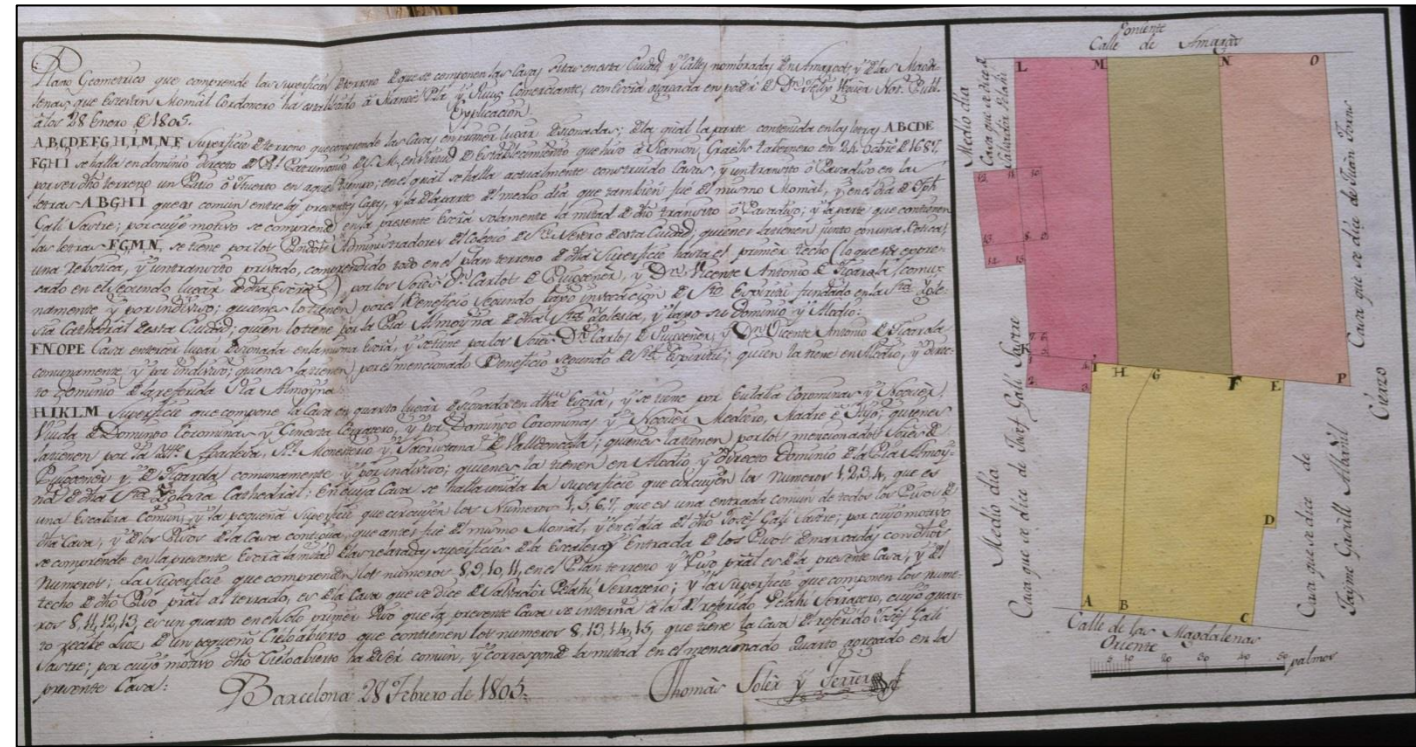 Plano Geometrico que comprende las superficies de terreno de que se componen las Casas sitas en esta Ciudad y Calles nombradas den Amargós, y de las Magda-
lenas, que Estevan Monial Cordonero ha
á los 28 Enero de 1805.
Explicacion.
A.B.C.D.E.F.G.H.I.M.N.F. Superficie de terreno que comprende las Casas en primer lugar designadas; de la qual la parte contenida en las letras A B C D E
F G H I se halla en dominio directo del Rl. Patrimonio de S.M. en virtud de Establecimiento que hizo á Ramon Taverner en 24
por ser dho terreno un Patio ó Huerto en aquel tiempo; en el qual se halla actualmente construido Casas, y un transito ó en las
letras A B G H I que es comun entre las presentes Casas, y la de la parte de medio dia que tambien fué del mismo Monial, y en el dia de Jph.
Galí Sastre; por cuyo motivo se comprende en la presente Escra solamente la mitad de dho transito ó y la parte que contienen
las letras F.G.M.N. se tiene por los Administradores del Colegio de Sn. Severo de esta Ciudad, quienes la tienen junto con una Botica,
una Rebotica, y un transito privado, comprendido todo en el plan terreno de dha Superficie hasta el primer techo (lo que va expre-
sado en el segundo lugar de dha Escra) y por los Sores Dn. Carlos de y Dn. Vicente Antonio de comu-
namente y por indiviso; quienes lo tienen por el Beneficio segundo bajo invocacion de Sto. Espiritu fundado en la Sta. Igle-
sia Cathedral de esta Ciudad; quien lo tiene por la Pia Almoyna de dha Sta. Iglesia, y bajo su Dominio y Alodio:
F.N.O.P.E Casa en tercer lugar designada en la misma Escra, y se tiene por los Sores Dn. Carlos de y Dn. Vicente Antonio de
comunamente, y por indiviso; quienes la tienen por el mencionado Beneficio segundo de Sto. Espiritu; quien la tiene en Alodio, y direc-
to Dominio de la referida Pia Almoyna
H.I.K.L.M Superficie que compone la Casa en quarto lugar designada en dha Escra, y se tiene por Eulalia Corominas y
Viuda de Domingo Corominas y Cerragero, y por Domingo Corominas y Medico, Madre é Hijo; quienes
la tienen por la Abadesa, Rl. Monesterio y de Valldoncella; quienes la tienen por los mencionados Sores de
y de comunamente y por indiviso; quienes la tienen en Alodio y directo Dominio de la Pia Almoy-
na de dha Sta. Iglesia Cathedral; en cuya Casa se halla unida la superficie que circuyen los Numeros 1, 2, 3, 4, que es
una Escalera Comun; y la pequeña superficie que circuyen los Numeros 1, 5, 6, 7, que es una entrada comun de todos los Pisos de
dha Casa, y de los Pisos de la Casa contigua, que antes fué del mismo Monial, y en el dia del dho Josef Galí Sastre; por cuyo motivo
se comprende en la presente Escra la mitad de las relatadas superficies de la Escalera y Entrada de los Pisos demarcadas con dhos
Numeros; La superficie que comprenden los numeros 8, 9, 10, 11, en el Plan terreno y Piso pral es de la presente Casa, y del
techo de dho Piso pral al terrado, es de la Casa que se dice de Salvador Pelahí Serragero; y la superficie que componen los nume-
ros 8, 11, 12, 13, es un quarto en el solo primer Piso que de la presente Casa se interna á la del referido Pelahí Serragero, cuyo quar-
to recibe luz de un pequeño Cieloabierto que contienen los numeros 8, 13, 14, 15, que tiene la Casa del referido Josef Galí
Sastre; por cuyo motivo dho Cieloabierto ha de ser comun, y corresponde la mitad en el mencionado quarto agregado en la
presente Casa:
Barcelona 28 Febrero de 1805.
Thomàs Solèr y Ferrer
Poniente
Calle de Amargós
L M N O
Medio dia
Casa que se dice de
Salvador Pelahí
12 11 10
13 8 9
14 15
7 6
K 5
I
4 3
H G F E P
D
A B C
Medio dia
Casa que se dice de Josef Galí Sastre
Casa que se dice de Juan Torns
Cierzo
Casa que se dice de
Jayme Albañil
Calle de las Magdalenas
Oriente
5 10 20 30 40 50 palmos